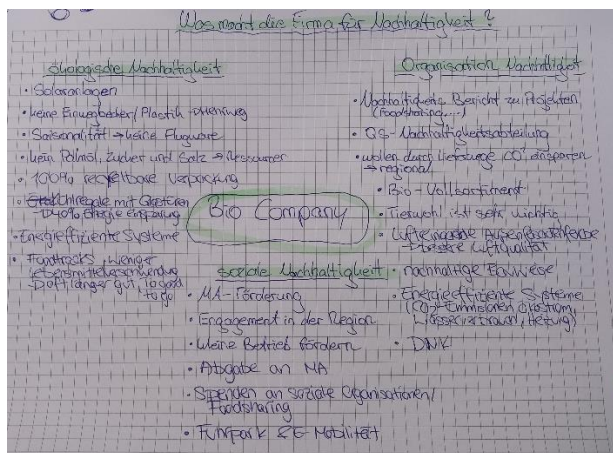 Was macht die Firma für Nachhaltigkeit?
ökologische Nachhaltigkeit
• Solaranlagen
• keine Einwegbecher/Plastik
• Saisonalität → keine Flugware
• kein Palmöl, Zucker und Salz →
• 100% recycelbare Verpackung
mit Glastüren
→ 40% Energie Einsparung
• Energieeffiziente Systeme
• weniger
Lebensmittelverschwendung
→ Oft länger gut, To good
to go
Bio Company
Organisation Nachhaltigkeit
• Nachhaltigkeits Bericht zu Projekten
(Foodsharing,...)
• QS-Nachhaltigkeitsabteilung
• wollen durch Lieferwege CO² einsparen
→ regional
• Bio-Vollsortiment
• Tierwohl ist sehr wichtig
• Luftreinigende
→ bessere Luftqualität
• nachhaltige
• Energieeffiziente Systeme
(CO²-Emmisionen, Ökostrom,
Wasserverbrauch, Heizung)
• DNK
soziale Nachhaltigkeit
• MA-Förderung
• Engagement in der Region
• kleine Betrieb fördern
• Abgabe an MA
• Spenden an soziale Organisationen/
Foodsharing
• Fuhrpark E-Mobilität